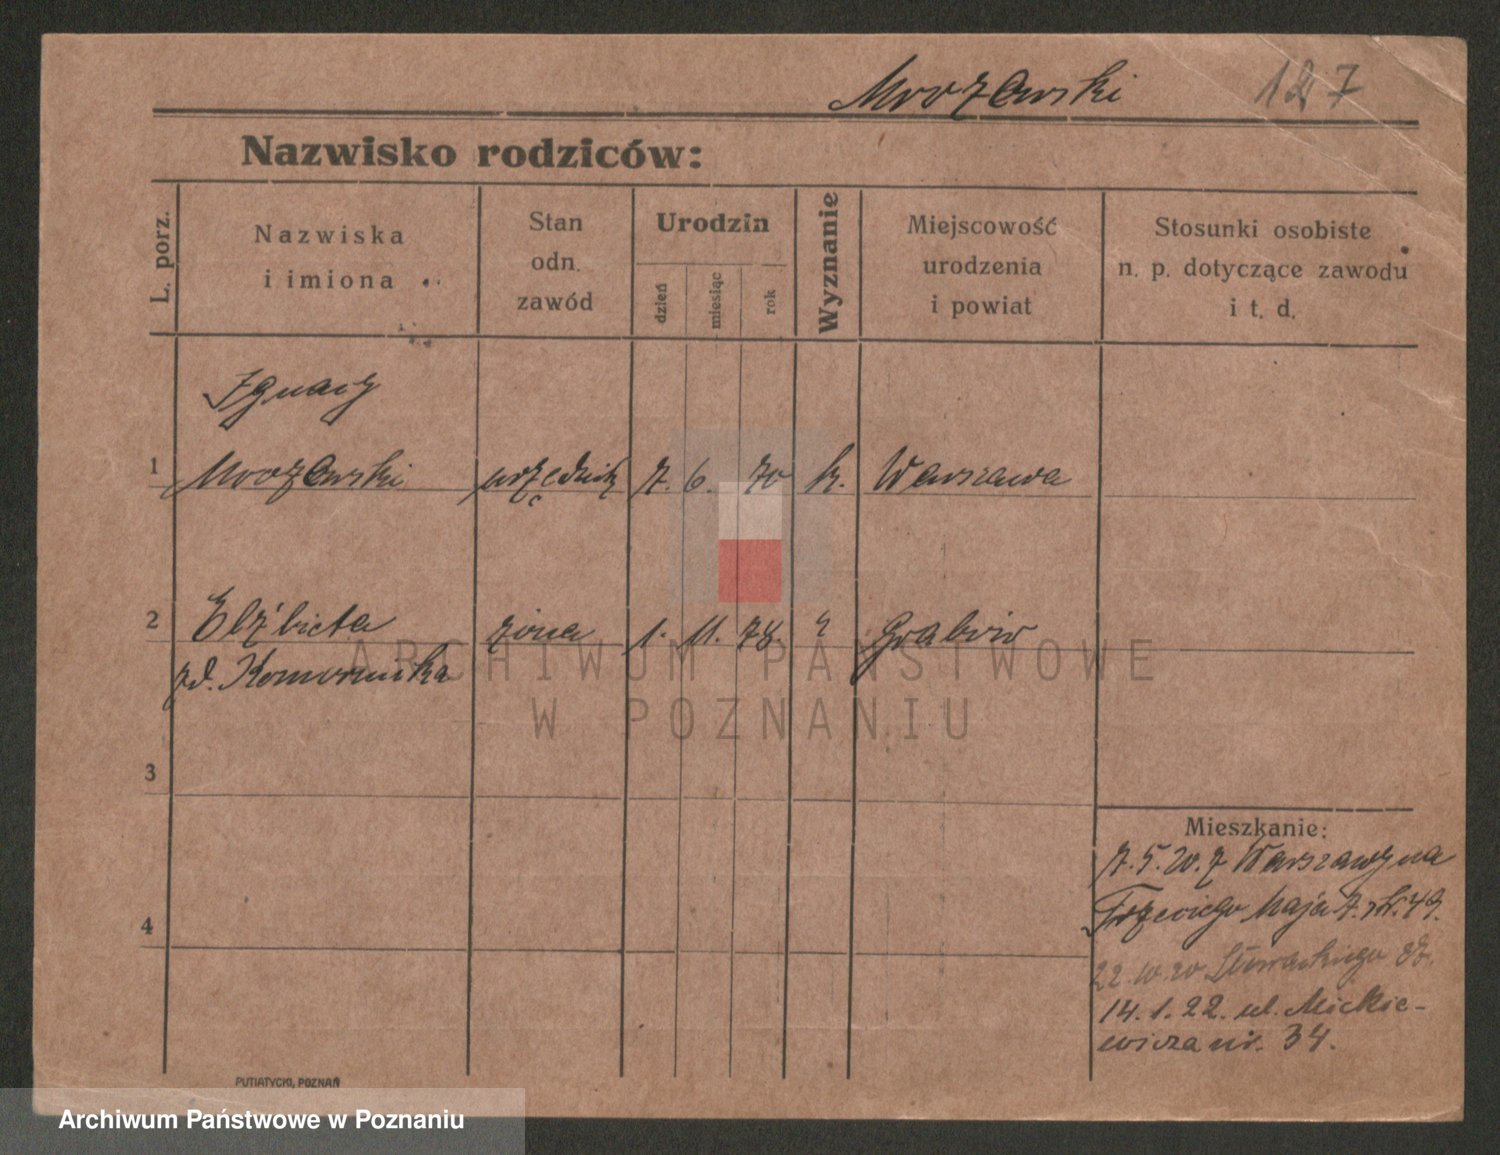 Mrozowski 127
Nazwisko rodziców:
L. porz.
Nazwiska
i imiona
Stan
odn.
zawód
Urodzin
dzień
miesiąc
rok
Wyznanie
Miejscowość
urodzenia
i powiat
Stosunki osobiste
n. p. dotyczące zawodu
i t. d.
Ignacy
1 Mrozowski urzędnik 7. 6. 70 k. Warszawa
2 Elżbieta żona 1. 11. 78. " Grabów
zd. Komornicka
3
4
Mieszkanie:
7.5.20. z Warszawy na
Trzeciego Maja 7. 49.
22.10.20 Słowackiego
14.1.22. ul. Mickie-
wicza nr. 34.
PUTIATYCKI, POZNAŃ
ARCHIWUM PAŃSTWOWE
W POZNANIU
Archiwum Państwowe w Poznaniu